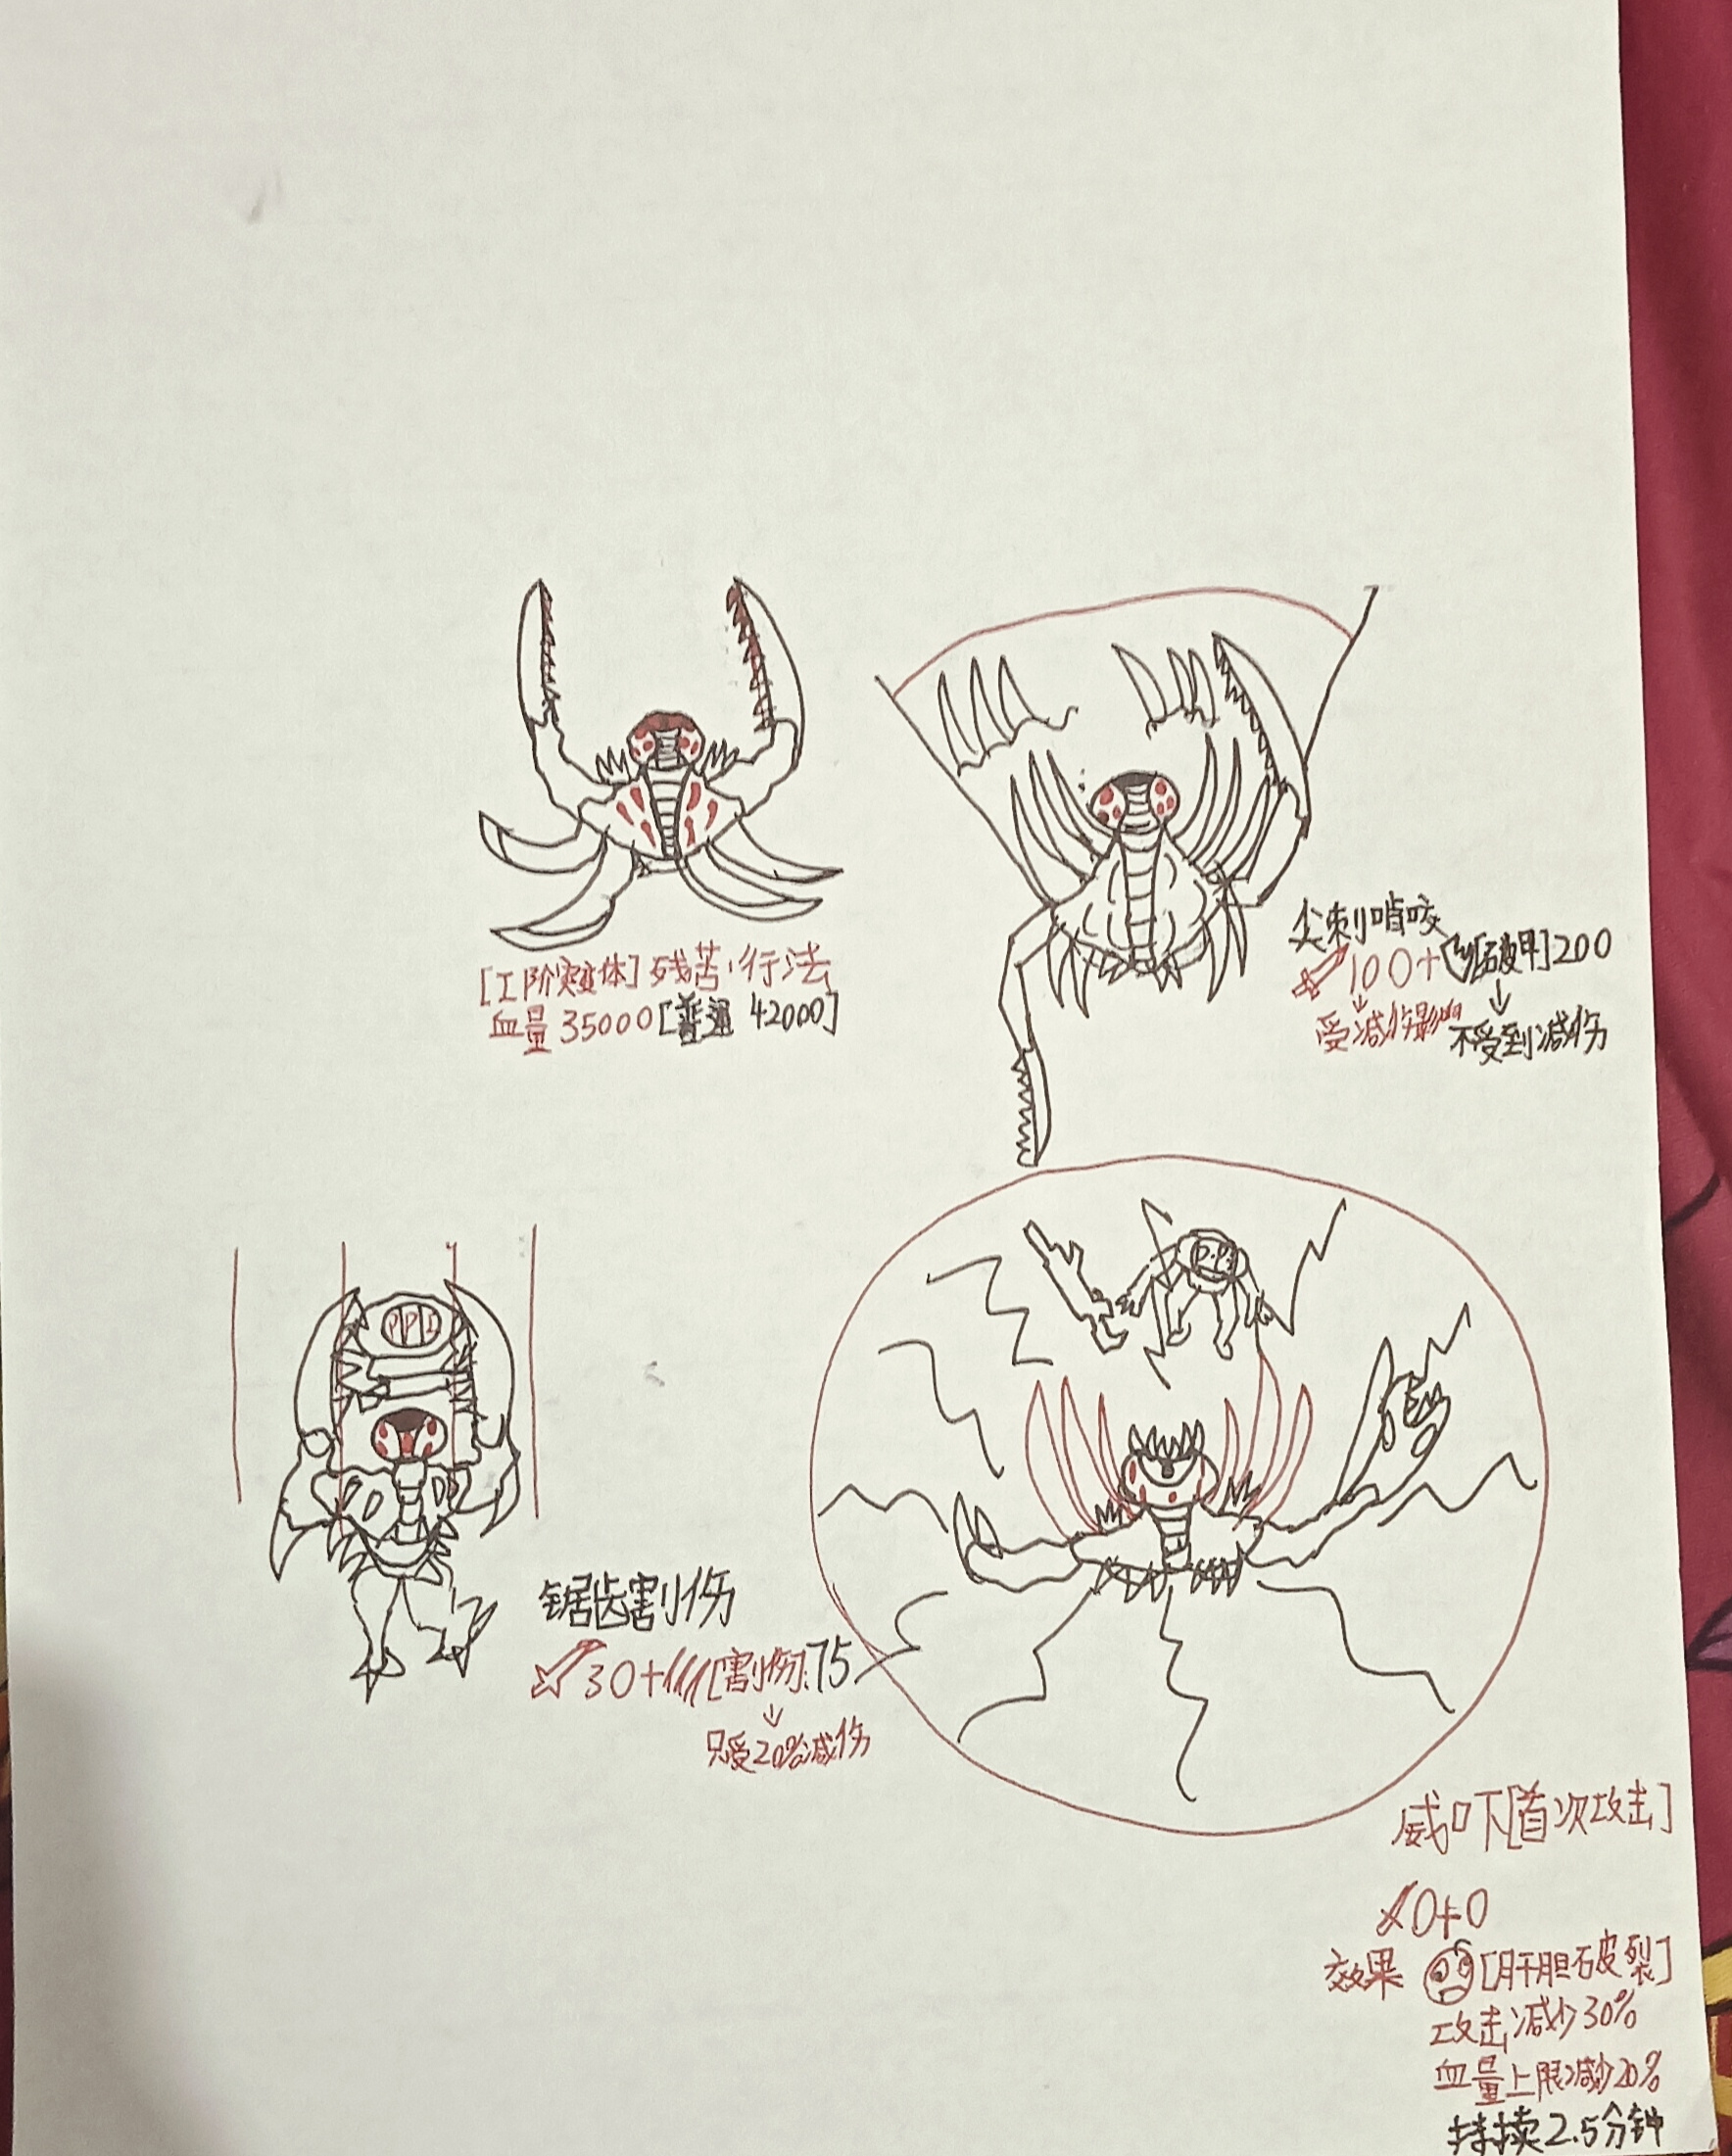 [工阶突变体] 残苦行法
血量 35000 [普通 42000]
尖刺啃咬
100+[破甲]200
受减伤影响
不受到减伤
PPL
锯齿割伤
30+[割伤]:75
只受20%减伤
威吓[首次攻击]
0+0
效果 [肝胆破裂]
攻击减少30%
血量上限减少20%
持续2.5分钟